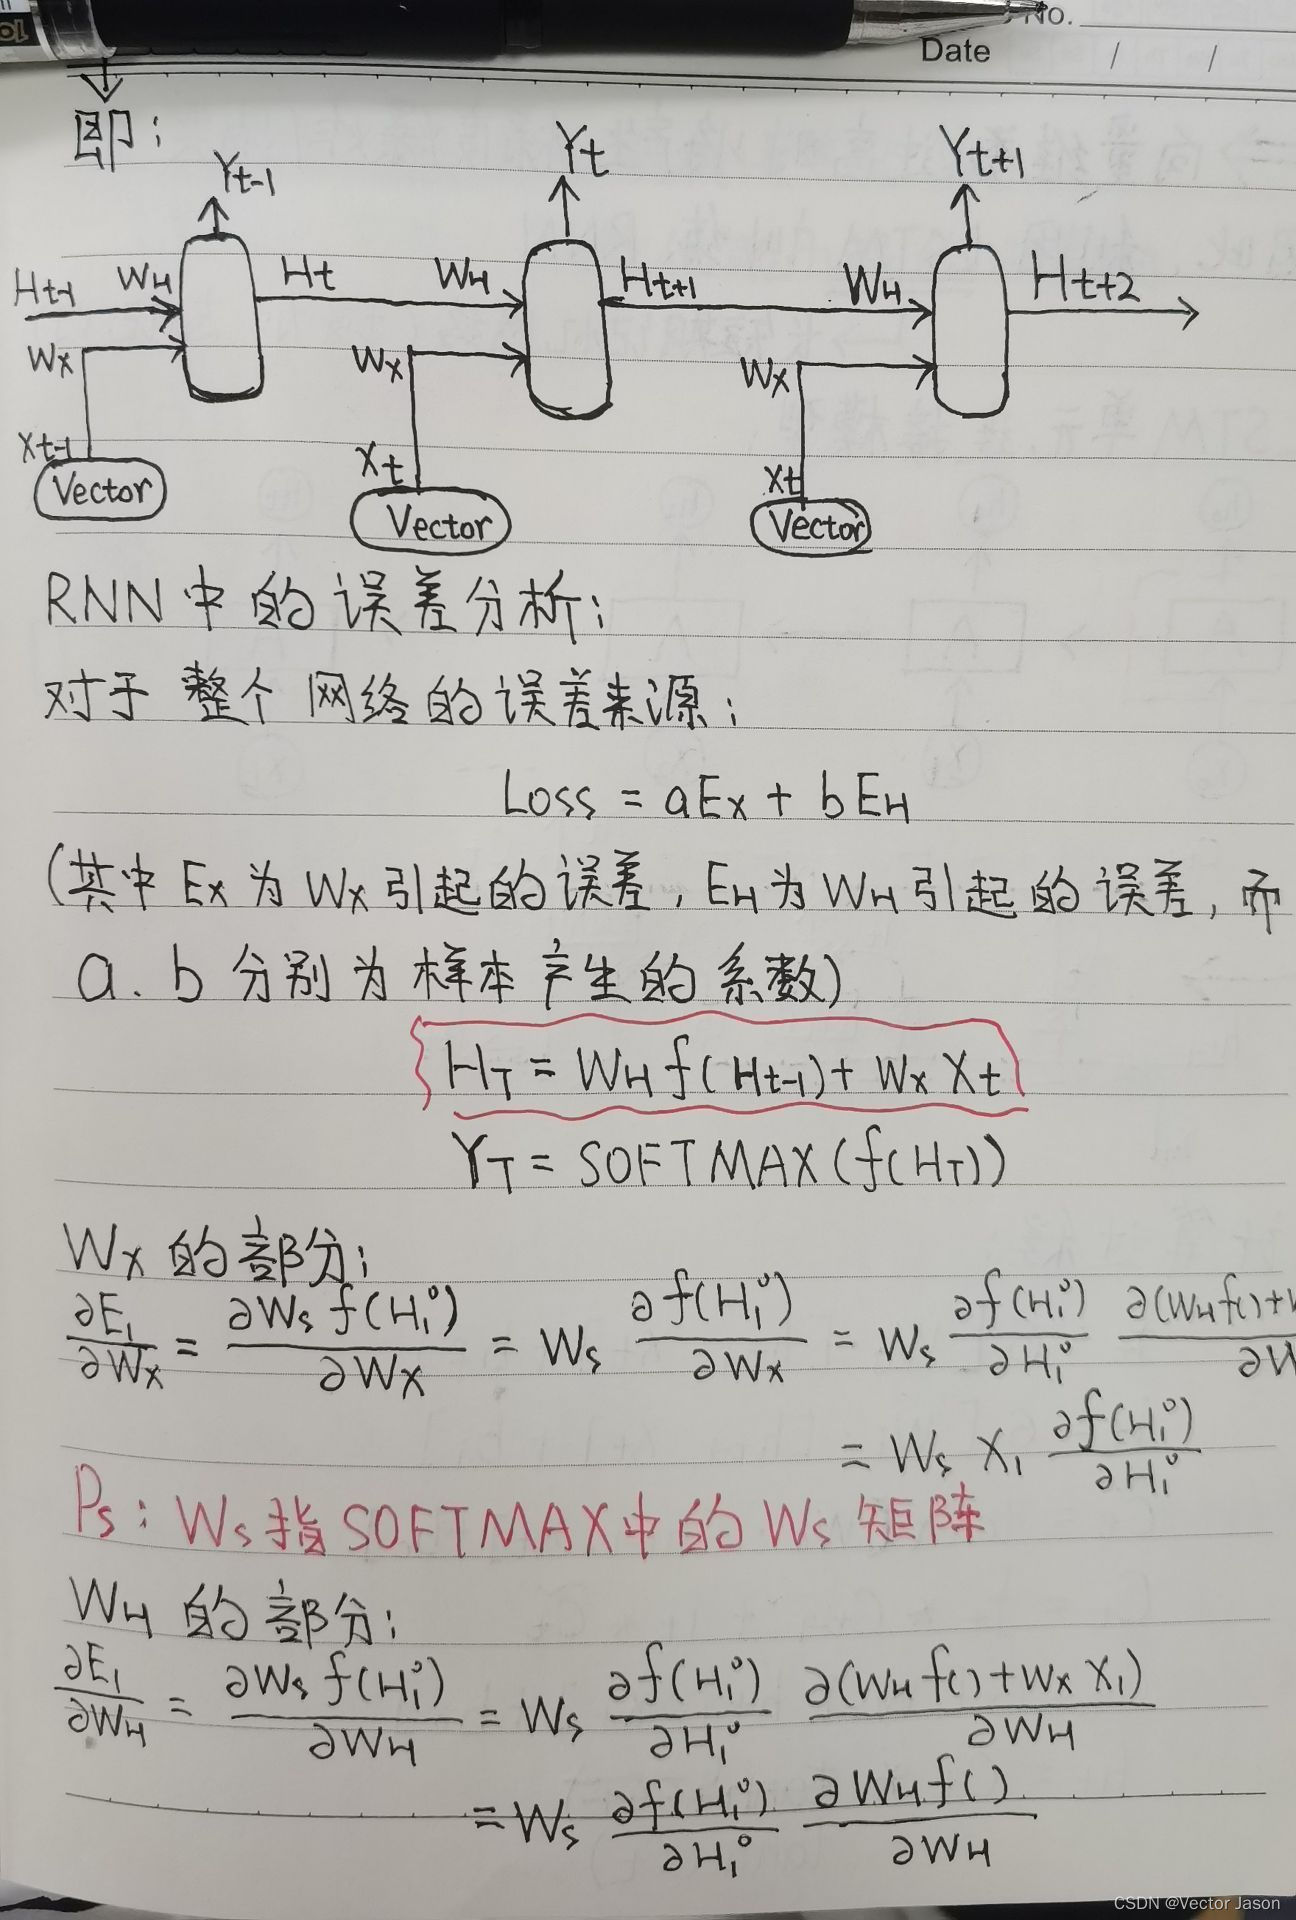 No.
Date / /
即:
Yt-1 Yt Yt+1
Ht-1 WH Ht WH Ht+1 WH Ht+2
Wx Wx Wx
Xt-1 Xt Xt
Vector Vector Vector
RNN中的误差分析:
对于整个网络的误差来源:
Loss = aEx + bEH
(其中Ex为Wx引起的误差,EH为WH引起的误差,而
a.b分别为样本产生的系数)
HT = WH f(Ht-1) + Wx Xt
YT = SOFTMAX(f(HT))
Wx的部分:
∂E1/∂Wx = ∂Ws f(H1°)/∂Wx = Ws ∂f(H1°)/∂Wx = Ws ∂f(H1°)/∂H1° ∂(WH f()+
= Ws X1 ∂f(H1°)/∂H1°
Ps: Ws指SOFTMAX中的Ws矩阵
WH的部分:
∂E1/∂WH = ∂Ws f(H1°)/∂WH = Ws ∂f(H1°)/∂H1° ∂(WH f()+Wx X1)/∂WH
= Ws ∂f(H1°)/∂H1° ∂WH f()/∂WH
CSDN @Vector Jason